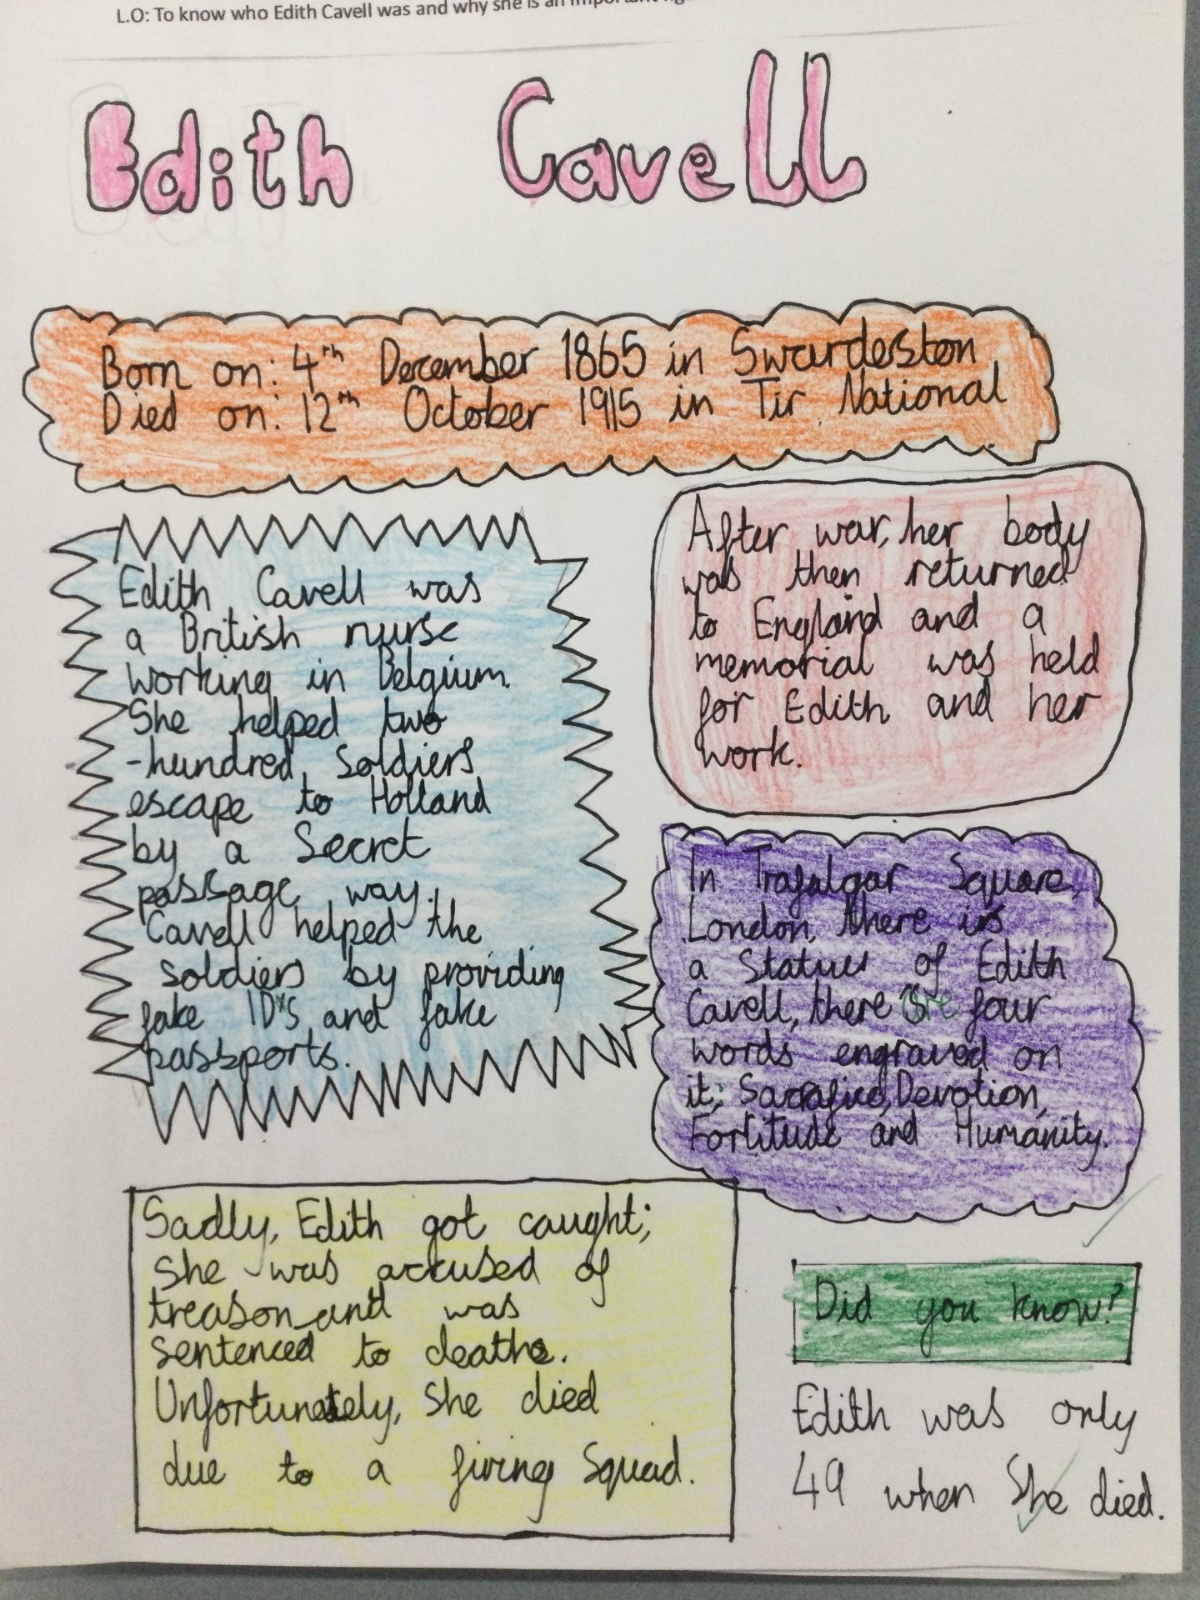 L.O: To know who Edith Cavell was and why she is an important
Edith Cavell
Born on: 4th December 1865 in Swardeston
Died on: 12th October 1915 in Tir National
Edith Cavell was
a British nurse
working in Belgium.
She helped two
-hundred soldiers
escape to Holland
by a Secret
passage way.
Cavell helped the
soldiers by providing
fake ID's and fake
passports.
After war, her body
was then returned
to England and a
memorial was held
for Edith and her
work.
In Trafalgar Square,
London, there is
a Statue of Edith
Cavell, there are four
words engraved on
it; Sacrafice, Devotion,
Fortitude and Humanity.
Sadly, Edith got caught;
she was accused of
treason and was
sentenced to death.
Unfortunately, she died
due to a firing Squad.
Did you know?
Edith was only
49 when She died.